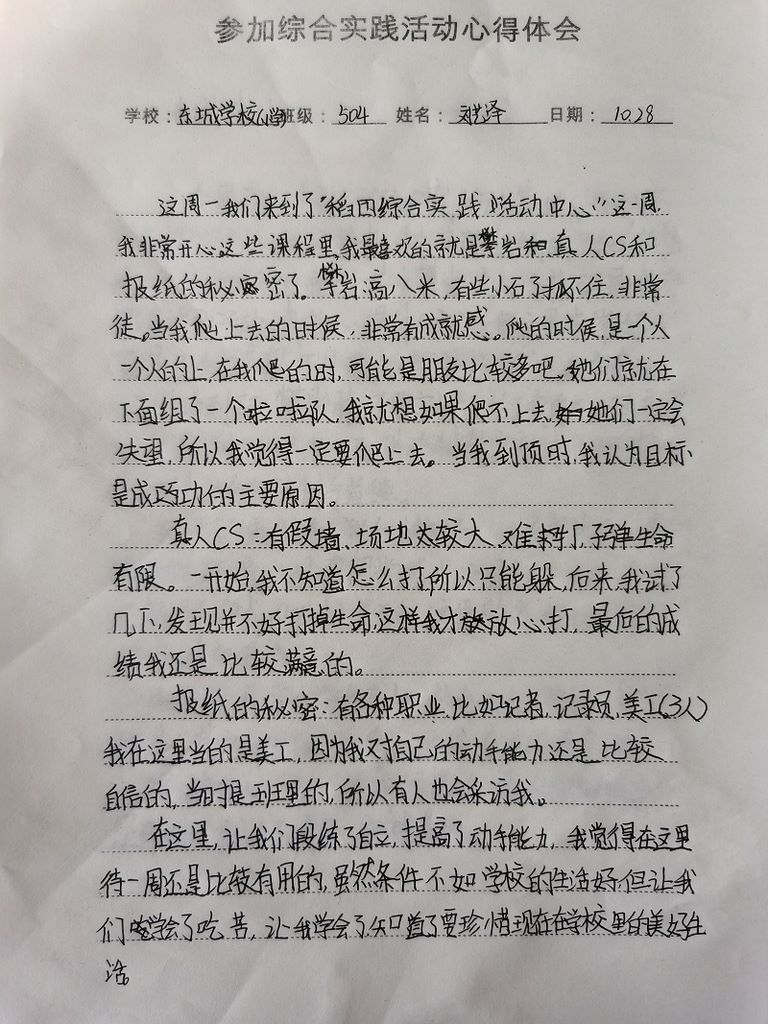 参加综合实践活动心得体会
学校：东城学校(小学)班级：504 姓名：刘艺泽 日期：10.28
这周一我们来到了“稻田综合实践活动中心”这一周,
我非常开心。这些课程里,我最喜欢的就是攀岩和真人CS和
报纸的秘密了。攀岩高八米,有些小石子抓不住,非常
徒。当我爬上去的时候,非常有成就感。爬的时候,是一个人
一个人的上,在我爬的时,可能是朋友比较多吧,她们就在
下面组了一个啦啦队,我就想如果爬不上去,她们一定会
失望,所以我觉得一定要爬上去。当我到顶时,我认为目标
是成功的主要原因。
真人CS:有假墙、场地太较大、难打,子弹生命
有限。一开始,我不知道怎么打所以只能躲,后来,我试了
几下,发现并不好打掉生命,这样我才放心打,最后的成
绩我还是比较满意的。
报纸的秘密:有各种职业,比如记者,记录员,美工(3人)
我在这里当的是美工,因为我对自己的动手能力还是比较
自信的,当时是班里的,所以有人也会采访我。
在这里,让我们段练了自立,提高了动手能力,我觉得在这里
待一周还是比较有用的,虽然条件不如学校的生活好,但让我
们学会了吃苦,让我学会了知道了要珍惜现在在学校里的美好生
活。